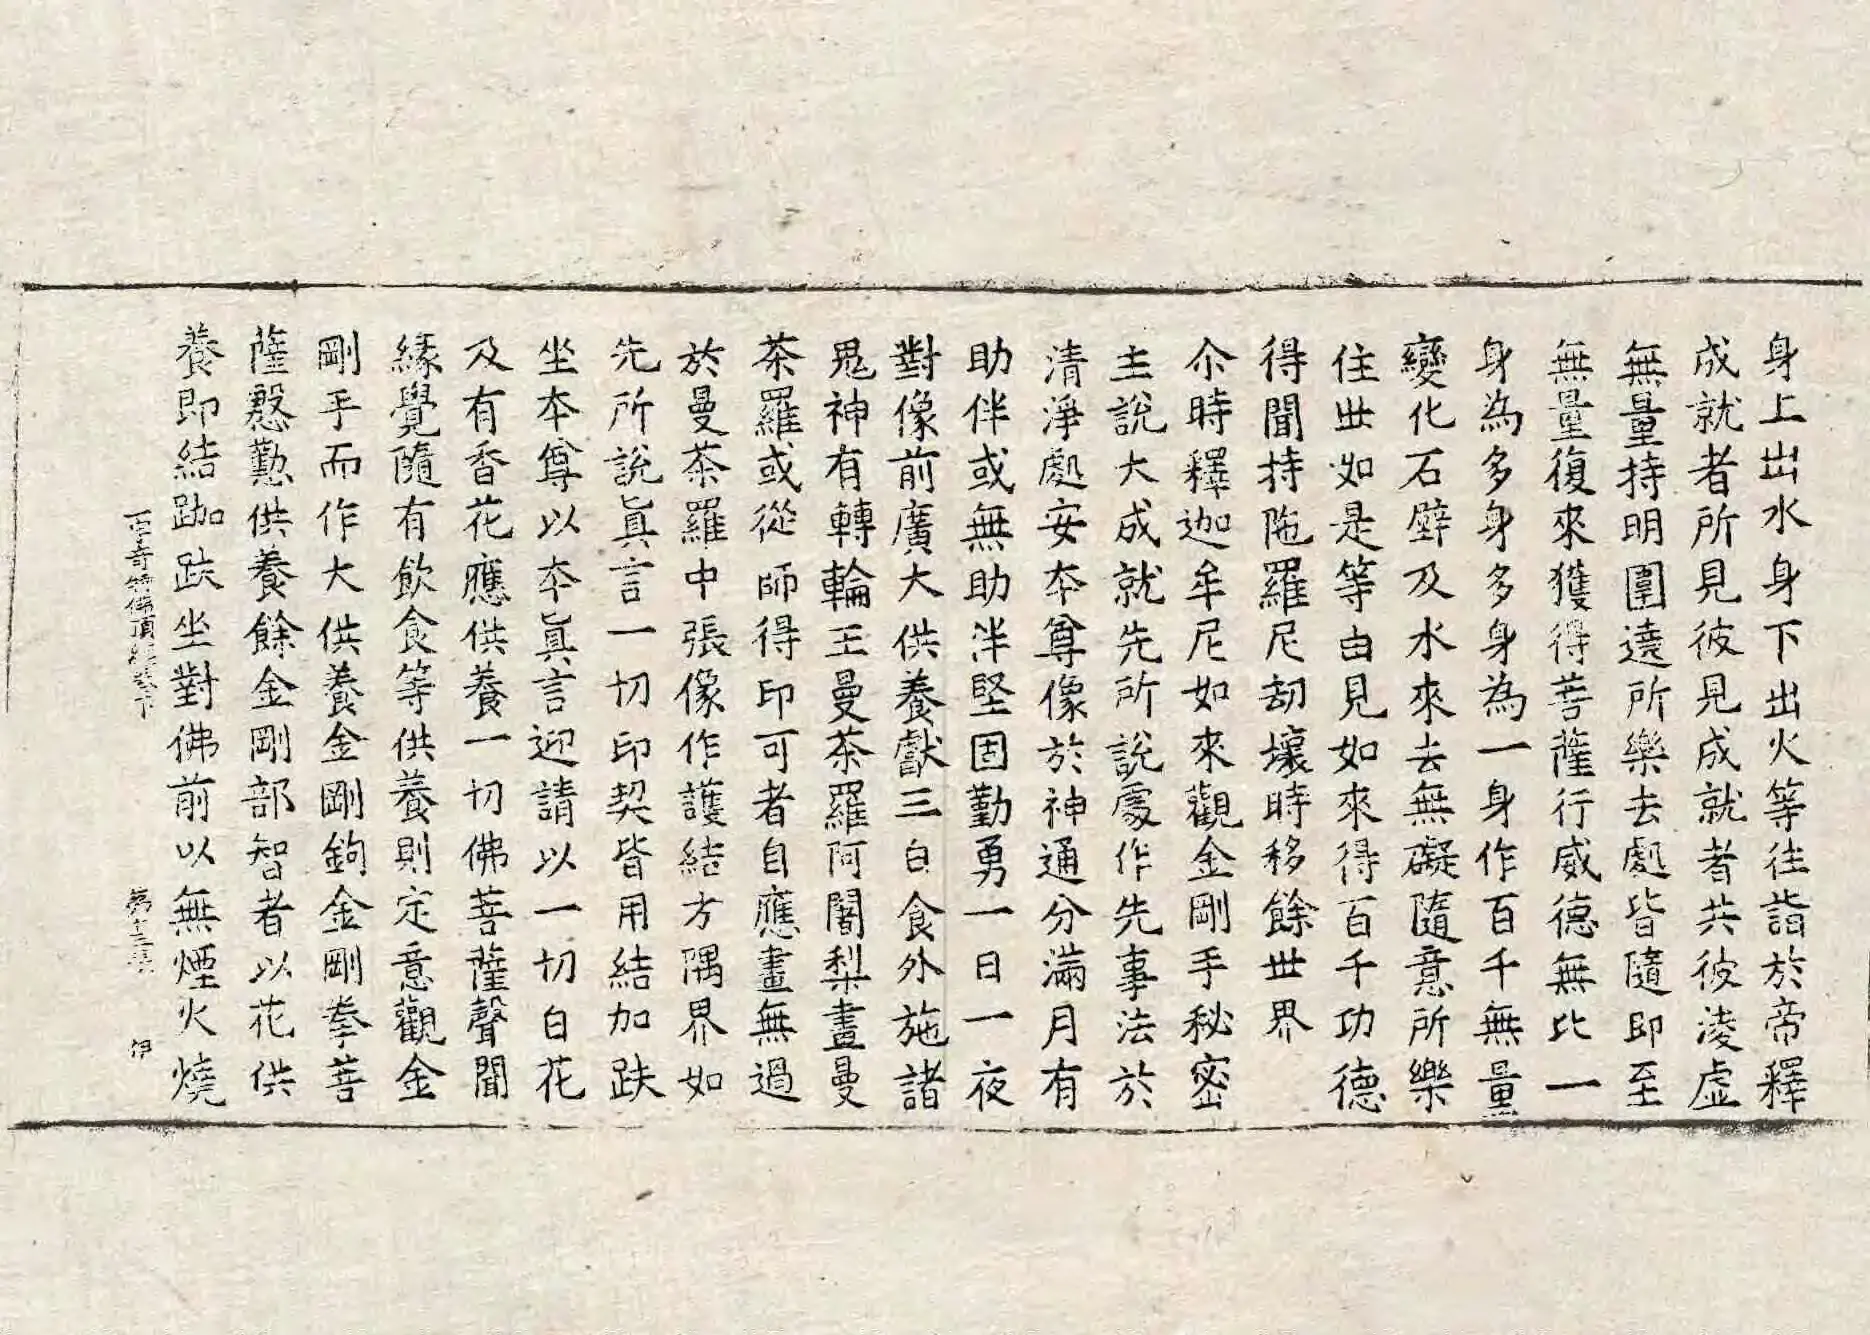 身上出水身下出火等往詣於帝釋
成就者所見彼見成就者共彼淩虛
無量持明圍遶所樂去處皆隨即至
無量復來獲得菩薩行威德無比一
身為多身多身為一身作百千無量
變化石壁及水來去無礙隨意所樂
住世如是等由見如來得百千功德
得聞持陁羅尼劫壞時移餘世界
尒時釋迦牟尼如來觀金剛手秘密
主說大成就先所說處作先事法於
清淨處安本尊像於神通分滿月有
助伴或無助泮堅固勤勇一日一夜
對像前廣大供養獻三白食外施諸
鬼神有轉輪王曼茶羅阿闍梨畫曼
茶羅或從師得印可者自應畫無過
於曼茶羅中張像作護結方隅界如
先所說眞言一切印契皆用結加趺
坐本尊以本眞言迎請以一切白花
及有香花應供養一切佛菩薩聲聞
緣覺隨有飲食等供養則定意觀金
剛手而作大供養金剛鉤金剛拳菩
薩慇懃供養餘金剛部智者以花供
養即結跏趺坐對佛前以無煙火燒
奇特佛頂經卷下 第十三張 伊